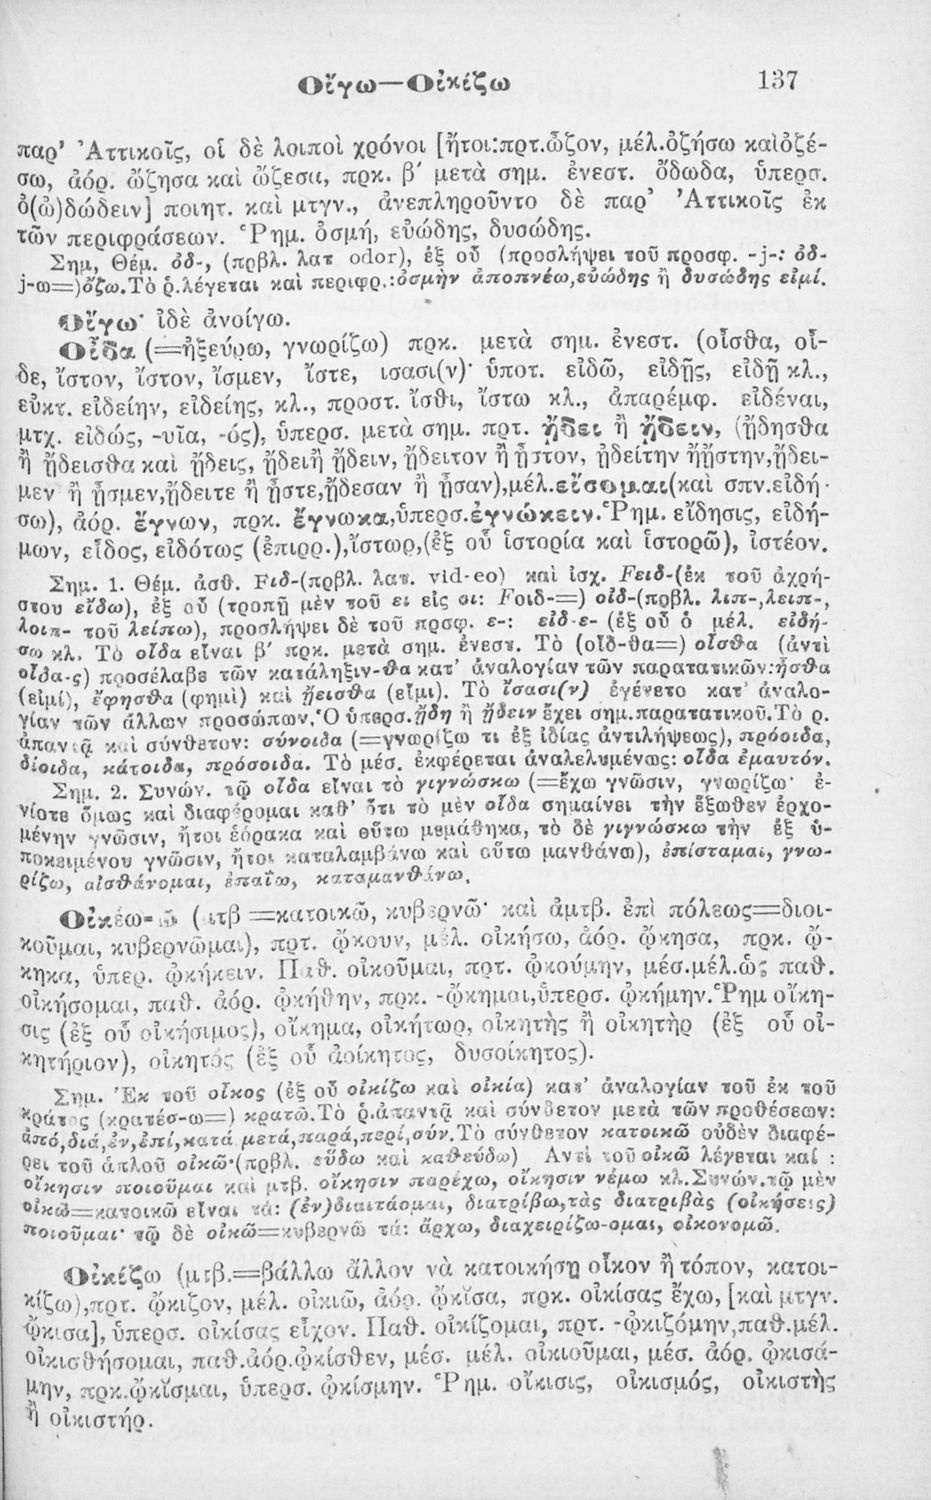 Οἴγω—Οἰκίζω 137
παρ' Ἀττικοῖς, οἱ δὲ λοιποὶ χρόνοι [ἤτοι:πρτ.ὦζον, μέλ.ὀζήσω καὶὀζέ-
σω, ἀόρ. ὤζησα καὶ ὤζεσα, πρκ. β΄ μετὰ σημ. ἐνεστ. ὄδωδα, ὑπερσ.
ὀ(ὠ)δώδειν] ποιητ. καὶ μτγν., ἀνεπληροῦντο δὲ παρ' Ἀττικοῖς ἐκ
τῶν περιφράσεων. Ῥημ. ὀσμή, εὐώδης, δυσώδης.
Σημ, Θέμ. ὀδ-, (πρβλ. λατ odor), ἐξ οὗ (προσλήψει τοῦ προσφ. -j-: ὀδ-
j-ω=)ὄζω.Τὸ ῥ.λέγεται καὶ περιφρ.:ὀσμὴν ἀποπνέω,εὐώδης ἢ δυσώδης εἰμί.
Οἴγω· ἰδὲ ἀνοίγω.
Οἶδα (=ἠξεύρω, γνωρίζω) πρκ. μετὰ σημ. ἐνεστ. (οἶσθα, οἶ-
δε, ἴστον, ἴστον, ἴσμεν, ἴστε, ισασι(ν)· ὑποτ. εἰδῶ, εἰδῇς, εἰδῇ κλ.,
εὐκτ. εἰδείην, εἰδείης, κλ., προστ. ἴσθι, ἴστω κλ., ἀπαρέμφ. εἰδέναι,
μτχ. εἰδώς, -υῖα, -ός), ὑπερσ. μετὰ σημ. πρτ. ᾔδει ἢ ᾔδειν, (ᾔδησθα
ἢ ᾔδεισθα καὶ ᾔδεις, ᾔδειἢ ᾔδειν, ᾔδειτον ἢ ᾖστον, ᾐδείτην ἢᾔστην,ᾔδει-
μεν ἢ ᾖσμεν,ᾔδειτε ἢ ᾖστε,ᾔδεσαν ἢ ᾖσαν),μέλ.εἴσομαι(καὶ σπν.εἰδή-
σω), ἀόρ. ἔγνων, πρκ. ἔγνωκα,ὑπερσ.ἐγνώκειν.Ῥημ. εἴδησις, εἰδή-
μων, εἶδος, εἰδότως (ἐπιρρ.),ἴστωρ,(ἐξ οὗ ἱστορία καὶ ἱστορῶ), ἰστέον.
Σημ. 1. Θέμ. ἀσθ. Fιδ-(πρβλ. λατ. vid-eo) καὶ ἰσχ. Fειδ-(ἐκ τοῦ ἀχρή-
στου εἴδω), ἐξ οὗ (τροπῇ μὲν τοῦ ει εἰς οι: Fοιδ-=) οἰδ-(πρβλ. λιπ-,λειπ-,
λοιπ- τοῦ λείπω), προσλήψει δὲ τοῦ πρσφ. ε-: εἰδ-ε- (ἐξ οὗ ὁ μέλ. εἰδή-
σω κλ. Τὸ οἶδα εἶναι β΄ πρκ. μετὰ σημ. ἐνεστ. Τὸ (οἶδ-θα=) οἶσθα (ἀντὶ
οἶδα-ς) προσέλαβε τῶν κατάληξιν-θα κατ' ἀναλογίαν τῶν παρατατικῶν:ἦσθα
(εἰμί), ἔφησθα (φημὶ) καὶ ᾔεισθα (εἶμι). Τὸ ἴσασι(ν) ἐγένετο κατ' ἀναλο-
γίαν τῶν ἄλλων προσώπων.Ὁ ὑπερσ.ᾔδη ἢ ᾔδειν ἔχει σημ.παρατατικοῦ.Τὸ ρ.
ἀπαντᾷ καὶ σύνθετον: σύνοιδα (=γνωρίζω τι ἐξ ἰδίας ἀντιλήψεως), πρόοιδα,
δίοιδα, κάτοιδα, πρόσοιδα. Τὸ μέσ. ἐκφέρεται ἀναλελυμένως: οἶδα ἐμαυτόν.
Σημ. 2. Συνών. τῷ οἶδα εἶναι τὸ γιγνώσκω (=ἔχω γνῶσιν, γνωρίζω· ἐ-
νίοτε ὅμως καὶ διαφέρομαι καθ' ὅτι τὸ μὲν οἶδα σημαίνει τὴν ἔξωθεν ἐρχο-
μένην γνῶσιν, ἤτοι ἑόρακα καὶ οὕτω μεμάθηκα, τὸ δὲ γιγνώσκω τὴν ἐξ ὑ-
ποκειμένου γνῶσιν, ἤτοι καταλαμβάνω καὶ οὕτω μανθάνω), ἐπίσταμαι, γνω-
ρίζω, αἰσθάνομαι, ἐπαΐω, καταμανθάνω.
Οἰκέω-ῶ (μτβ =κατοικῶ, κυβερνῶ· καὶ ἀμτβ. ἐπὶ πόλεως=διοι-
κοῦμαι, κυβερνῶμαι), πρτ. ᾤκουν, μέλ. οἰκήσω, ἀόρ. ᾤκησα, πρκ. ᾤ-
κηκα, ὑπερ. ᾠκήκειν. Παθ. οἰκοῦμαι, πρτ. ᾠκούμην, μέσ.μέλ.ὡς παθ.
οἰκήσομαι, παθ. ἀόρ. ᾠκήθην, πρκ. -ᾤκημαι,ὑπερσ. ᾠκήμην.Ῥημ οἴκη-
σις (ἐξ οὗ οἰκήσιμος), οἴκημα, οἰκήτωρ, οἰκητὴς ἢ οἰκητὴρ (ἐξ οὗ οἰ-
κητήριον), οἰκητός (ἐξ οὗ ἀοίκητος, δυσοίκητος).
Σημ. Ἐκ τοῦ οἶκος (ἐξ οὗ οἰκίζω καὶ οἰκία) κατ' ἀναλογίαν τοῦ ἐκ τοῦ
κράτος (κρατέσ-ω=) κρατῶ.Τὸ ῥ.ἀπαντᾷ καὶ σύνθετον μετὰ τῶν προθέσεων:
ἀπό,διά,ἐν,ἐπί,κατά μετά,παρά,περί,σύν.Τὸ σύνθετον κατοικῶ οὐδὲν διαφέ-
ρει τοῦ ἁπλοῦ οἰκῶ·(πρβλ. εὕδω καὶ καθεύδω) Ἀντὶ τοῦ οἰκῶ λέγεται καὶ :
οἴκησιν ποιοῦμαι καὶ μτβ. οἴκησιν παρέχω, οἴκησιν νέμω κλ.Συνών.τῷ μὲν
οἰκῶ=κατοικῶ εἶναι τά: (ἐν)διαιτάομαι, διατρίβω,τὰς διατριβὰς (οἰκήσεις)
ποιοῦμαι· τῷ δὲ οἰκῶ=κυβερνῶ τά: ἄρχω, διαχειρίζω-ομαι, οἰκονομῶ.
Οἰκίζω (μτβ.=βάλλω ἄλλον νὰ κατοικήσῃ οἶκον ἢ τόπον, κατοι-
κίζω),πρτ. ᾤκιζον, μέλ. οἰκιῶ, ἀόρ. ᾤκισα, πρκ. οἰκίσας ἔχω, [καὶ μτγν.
ᾤκισα], ὑπερσ. οἰκίσας εἶχον. Παθ. οἰκίζομαι, πρτ. -ᾠκιζόμην,παθ.μέλ.
οἰκισθήσομαι, παθ.ἀόρ.ᾠκίσθεν, μέσ. μέλ. οἰκιοῦμαι, μέσ. ἀόρ. ᾠκισά-
μην, πρκ.ᾤκισμαι, ὑπερσ. ᾠκίσμην. Ῥημ. οἴκισις, οἰκισμός, οἰκιστὴς
ἢ οἰκιστήρ.